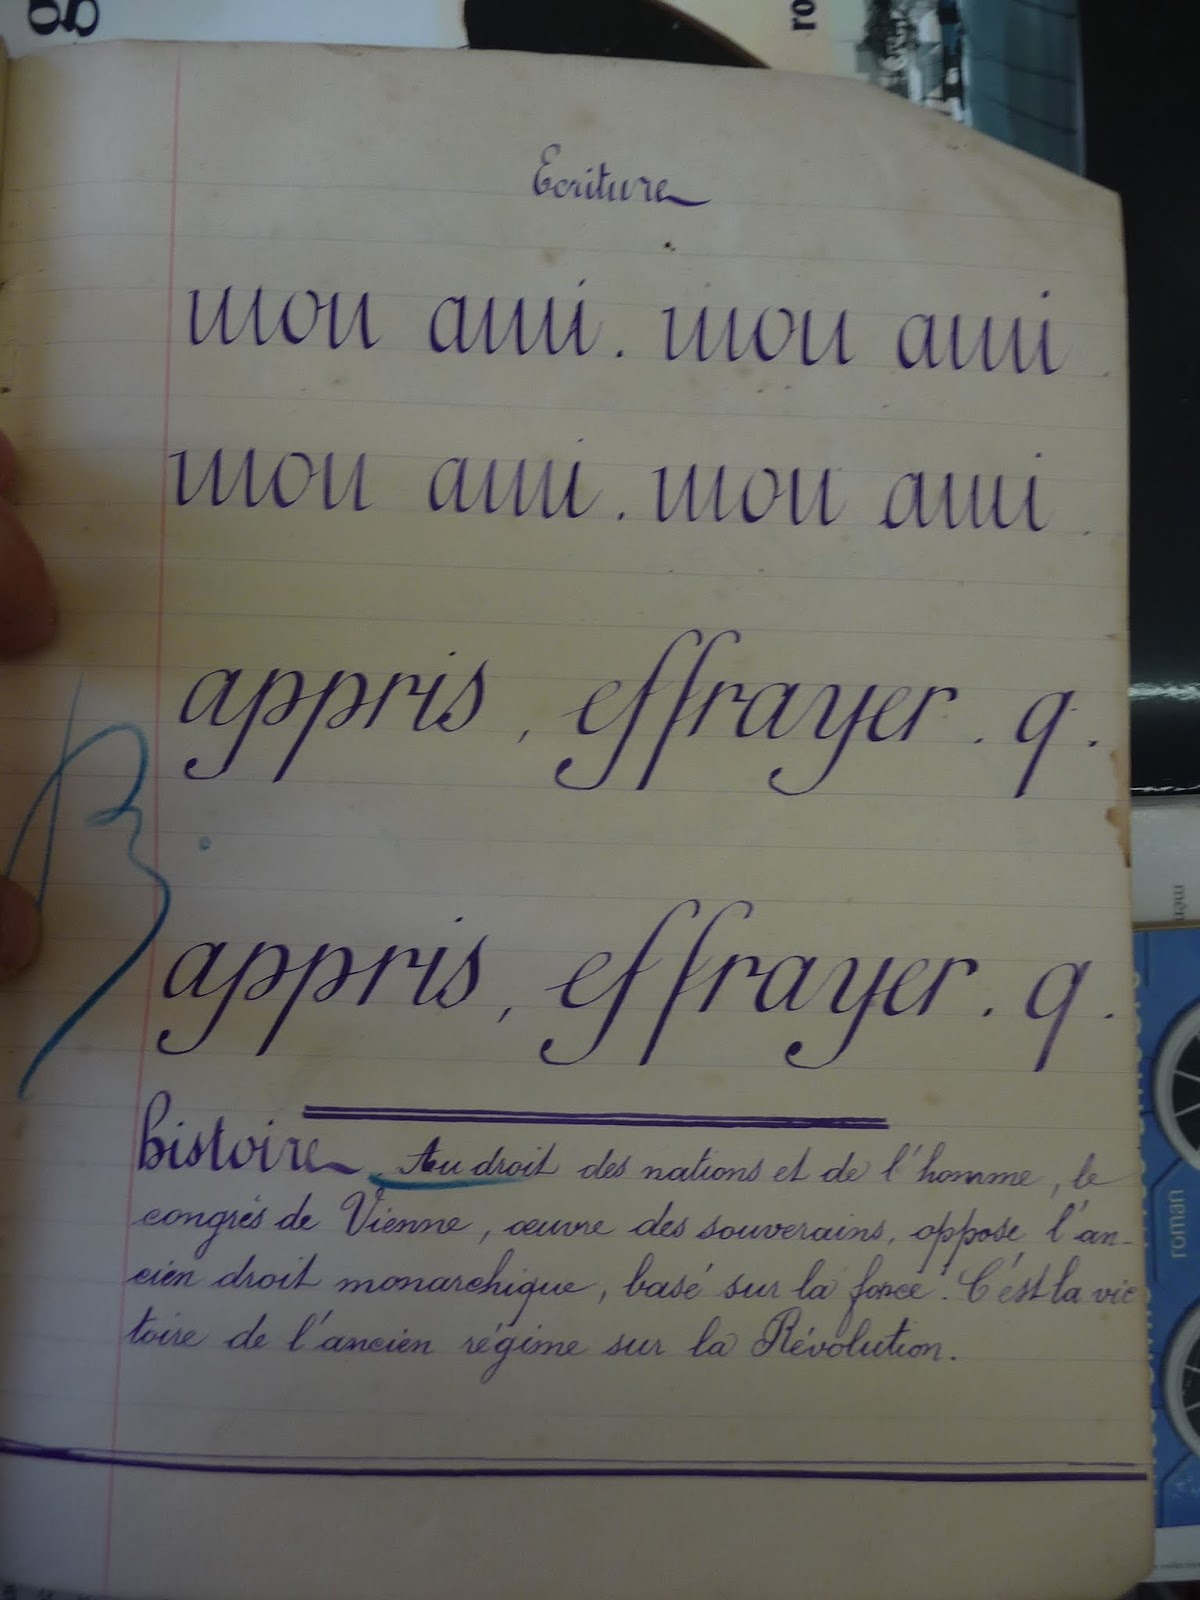 Ecriture
mon ami. mon ami.
mon ami. mon ami.
appris, effrayer. q.
B.
appris, effrayer. q.
histoire Au droit des nations et de l'homme, le
congrés de Vienne, œuvre des souverains, oppose l'an-
cien droit monarchique, basé sur la force. C'est la vic
toire de l'ancien régime sur la Révolution.
roman